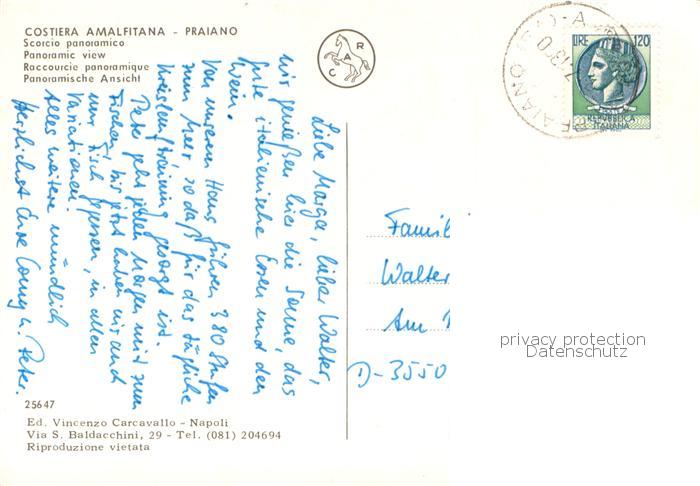 COSTIERA AMALFITANA - PRAIANO
Scorcio panoramico
Panoramic view
Raccourcie panoramique
Panoramische Ansicht
C A R
LIRE 120
REPUBBLICA
ITALIANA
PRAIANO (SA)
Liebe Marga, lieber Walter,
wir genießen hier die Sonne, das
gute italienische Essen und den
Wein.
Von unserem Haus führen 380 Stufen
zum Meer so daß für das tägliche
Kreislauftraining gesorgt ist.
Peter geht jeden Morgen mit zum
Fischen, bis jetzt haben wir auch
nur Fisch gegessen, in allen
Variationen.
Alles weitere mündlich
Herzlichst Eure Conny u. Peter.
Famil
Walter
Am
D-3550
privacy protection
Datenschutz
25647
Ed. Vincenzo Carcavallo - Napoli
Via S. Baldacchini, 29 - Tel. (081) 204694
Riproduzione vietata